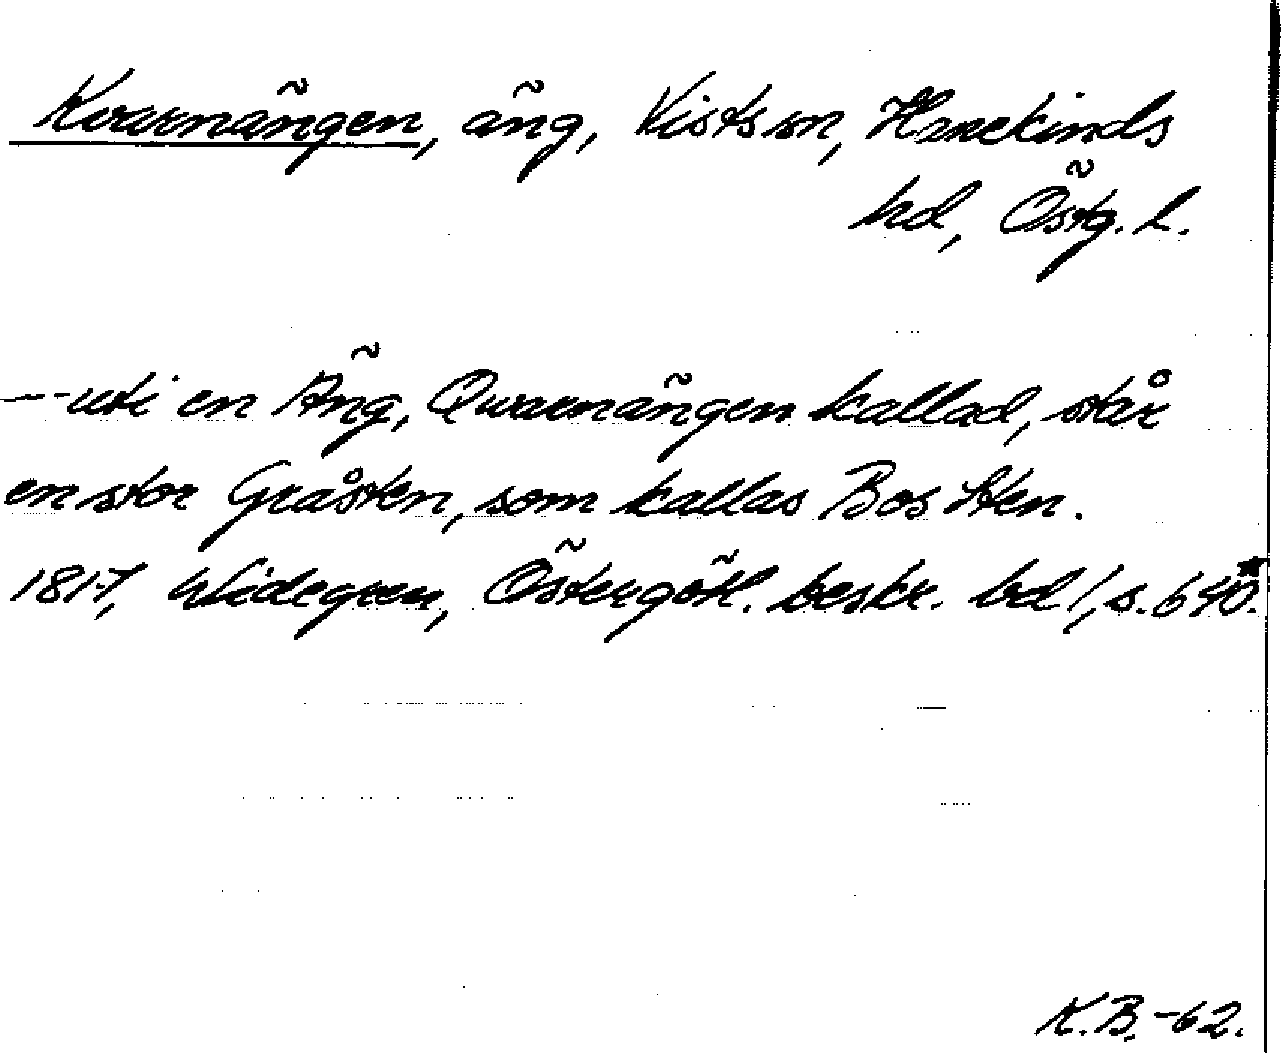 Kvarnängen, äng, Vists sn, Hanekinds
hd, Östg. l.
-- uti en Äng, Qwarnängen kallad, står
en stor Gråsten, som kallas Bos Sten.
1817, Widegren, Östergötl. beskr. bd 1, s. 640.
K.B.-62.